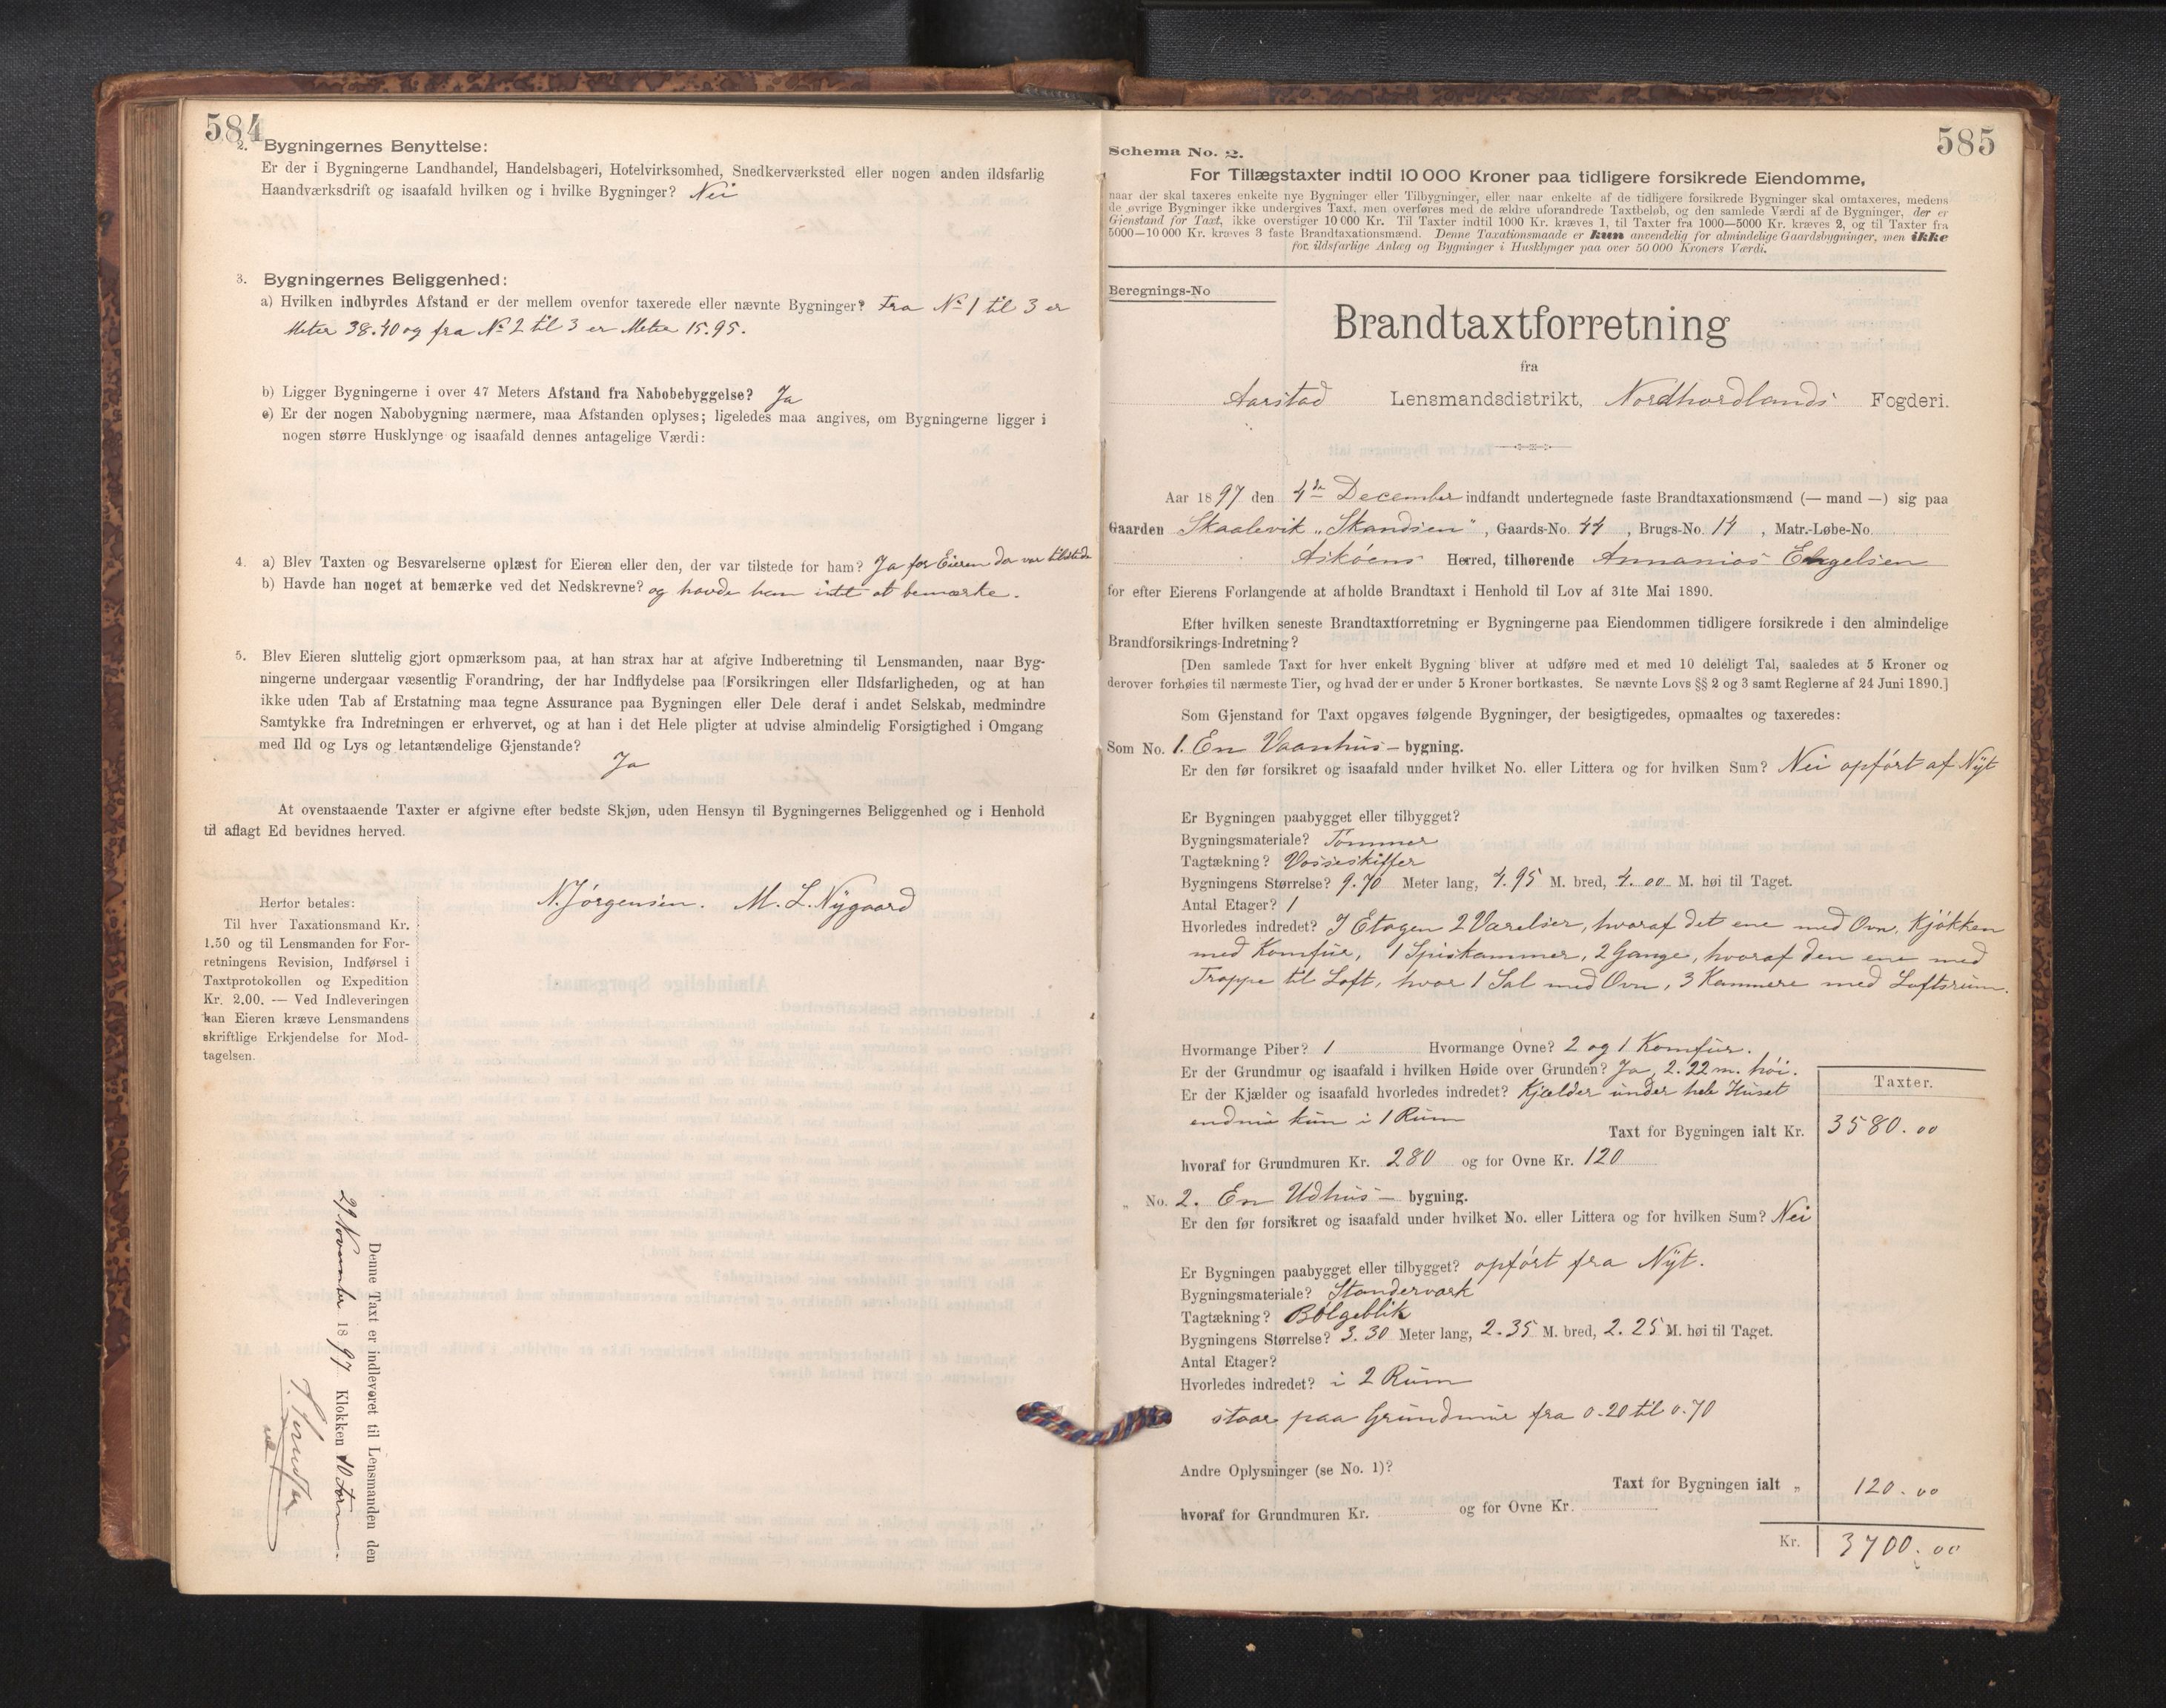 584
2. Bygningernes Benyttelse:
Er der i Bygningerne Landhandel, Handelsbageri, Hotelvirksomhed, Snedkerværksted eller nogen anden ildsfarlig
Haandværksdrift og isaafald hvilken og i hvilke Bygninger? Nei
3. Bygningernes Beliggenhed:
a) Hvilken indbyrdes Afstand er der mellem ovenfor taxerede eller nævnte Bygninger? Fra No 1 til 3 er
Meter 38.40 og fra No 2 til 3 er Meter 15.95.
b) Ligger Bygningerne i over 47 Meters Afstand fra Nabobebyggelse? Ja
c) Er der nogen Nabobygning nærmere, maa Afstanden oplyses; ligeledes maa angives, om Bygningerne ligger i
nogen større Husklynge og isaafald dennes antagelige Værdi:
4. a) Blev Taxten og Besvarelserne oplæst for Eieren eller den, der var tilstede for ham? Ja for Eieren da var tilstede
b) Havde han noget at bemærke ved det Nedskrevne? og havde han intet at bemærke.
5. Blev Eieren sluttelig gjort opmærksom paa, at han strax har at afgive Indberetning til Lensmanden, naar Byg-
ningerne undergaar væsentlig Forandring, der har Indflydelse paa Forsikringen eller Ildsfarligheden, og at han
ikke uden Tab af Erstatning maa tegne Assurance paa Bygningen eller Dele deraf i andet Selskab, medmindre
Samtykke fra Indretningen er erhvervet, og at han i det Hele pligter at udvise almindelig Forsigtighed i Omgang
med Ild og Lys og letantændelige Gjenstande?
Ja
At ovenstaaende Taxter er afgivne efter bedste Skjøn, uden Hensyn til Bygningernes Beliggenhed og i Henhold
til aflagt Ed bevidnes herved.
N. Jørgensen. M. L. Nygaard
Herfor betales:
Til hver Taxationsmand Kr.
1.50 og til Lensmanden for For-
retningens Revision, Indførsel i
Taxtprotokollen og Expedition
Kr. 2.00. — Ved Indleveringen
kan Eieren kræve Lensmandens
skriftlige Erkjendelse for Mod-
tagelsen.
Denne Taxt er indleveret til Lensmanden den
29 November 1897 Klokken 10 Form.
585
Schema No. 2.
For Tillægstaxter indtil 10 000 Kroner paa tidligere forsikrede Eiendomme,
naar der skal taxeres enkelte nye Bygninger eller Tilbygninger, eller naar enkelte af de tidligere forsikrede Bygninger skal omtaxeres, medens
de øvrige Bygninger ikke undergives Taxt, men overføres med de ældre uforandrede Taxtbeløb, og den samlede Værdi af de Bygninger, der er
Gjenstand for Taxt, ikke overstiger 10 000 Kr. Til Taxter indtil 1000 Kr. kræves 1, til Taxter fra 1000—5000 Kr. kræves 2, og til Taxter fra
5000—10 000 Kr. kræves 3 faste Brandtaxationsmænd. Denne Taxationsmaade er kun anvendelig for almindelige Gaardsbygninger, men ikke
for ildsfarlige Anlæg og Bygninger i Husklynger paa over 50 000 Kroners Værdi.
Beregnings-No
Brandtaxtforretning
fra
Aarstad Lensmandsdistrikt, Nordhordlands Fogderi.
Aar 1897 den 4de December indfandt undertegnede faste Brandtaxationsmænd (— mand —) sig paa
Gaarden Skaalevik „Skandsen", Gaards-No. 44, Brugs-No. 14, Matr.-Løbe-No.
Askøens Herred, tilhørende Annanias Engelsen
for efter Eierens Forlangende at afholde Brandtaxt i Henhold til Lov af 31te Mai 1890.
Efter hvilken seneste Brandtaxtforretning er Bygningerne paa Eiendommen tidligere forsikrede i den almindelige
Brandforsikrings-Indretning?
[Den samlede Taxt for hver enkelt Bygning bliver at udføre med et med 10 deleligt Tal, saaledes at 5 Kroner og
derover forhøies til nærmeste Tier, og hvad der er under 5 Kroner bortkastes. Se nævnte Lovs §§ 2 og 3 samt Reglerne af 24 Juni 1890.]
Som Gjenstand for Taxt opgaves følgende Bygninger, der besigtigedes, opmaaltes og taxeredes:
Som No. 1. En Vaanhus- bygning.
Er den før forsikret og isaafald under hvilket No. eller Littera og for hvilken Sum? Nei opført af Nyt
Er Bygningen paabygget eller tilbygget?
Bygningsmateriale? Tømmer
Tagtækning? Vosseskiffer
Bygningens Størrelse? 9.70 Meter lang, 4.95 M. bred, 4.00 M. høi til Taget.
Antal Etager? 1
Hvorledes indredet? I Etagen 2 Værelser, hvoraf det ene med Ovn, Kjøkken
med Komfur, 1 Spiskammer, 2 Gange, hvoraf den ene med
Trappe til Loft, hvor 1 Sal med Ovn, 3 Kammere med Loftsrum.
Hvormange Piber? 1 Hvormange Ovne? 2 og 1 Komfur.
Er der Grundmur og isaafald i hvilken Høide over Grunden? Ja, 2.22 m. høi.
Er der Kjælder og isaafald hvorledes indredet? Kjælder under hele Huset
endnu kun i 1 Rum
Taxter.
Taxt for Bygningen ialt Kr. 3580.00
hvoraf for Grundmuren Kr. 280 og for Ovne Kr. 120
„ No. 2. En Udhus- bygning.
Er den før forsikret og isaafald under hvilket No. eller Littera og for hvilken Sum? Nei
Er Bygningen paabygget eller tilbygget? opført fra Nyt.
Bygningsmateriale? Standerværk
Tagtækning? Bølgeblik
Bygningens Størrelse? 3.30 Meter lang, 2.35 M. bred, 2.25 M. høi til Taget.
Antal Etager?
Hvorledes indredet? i 2 Rum
staar paa Grundmur fra 0.20 til 0.70
Andre Oplysninger (se No. 1)?
Taxt for Bygningen ialt „ 120.00
hvoraf for Grundmuren Kr. og for Ovne Kr.
Kr. 3700.00